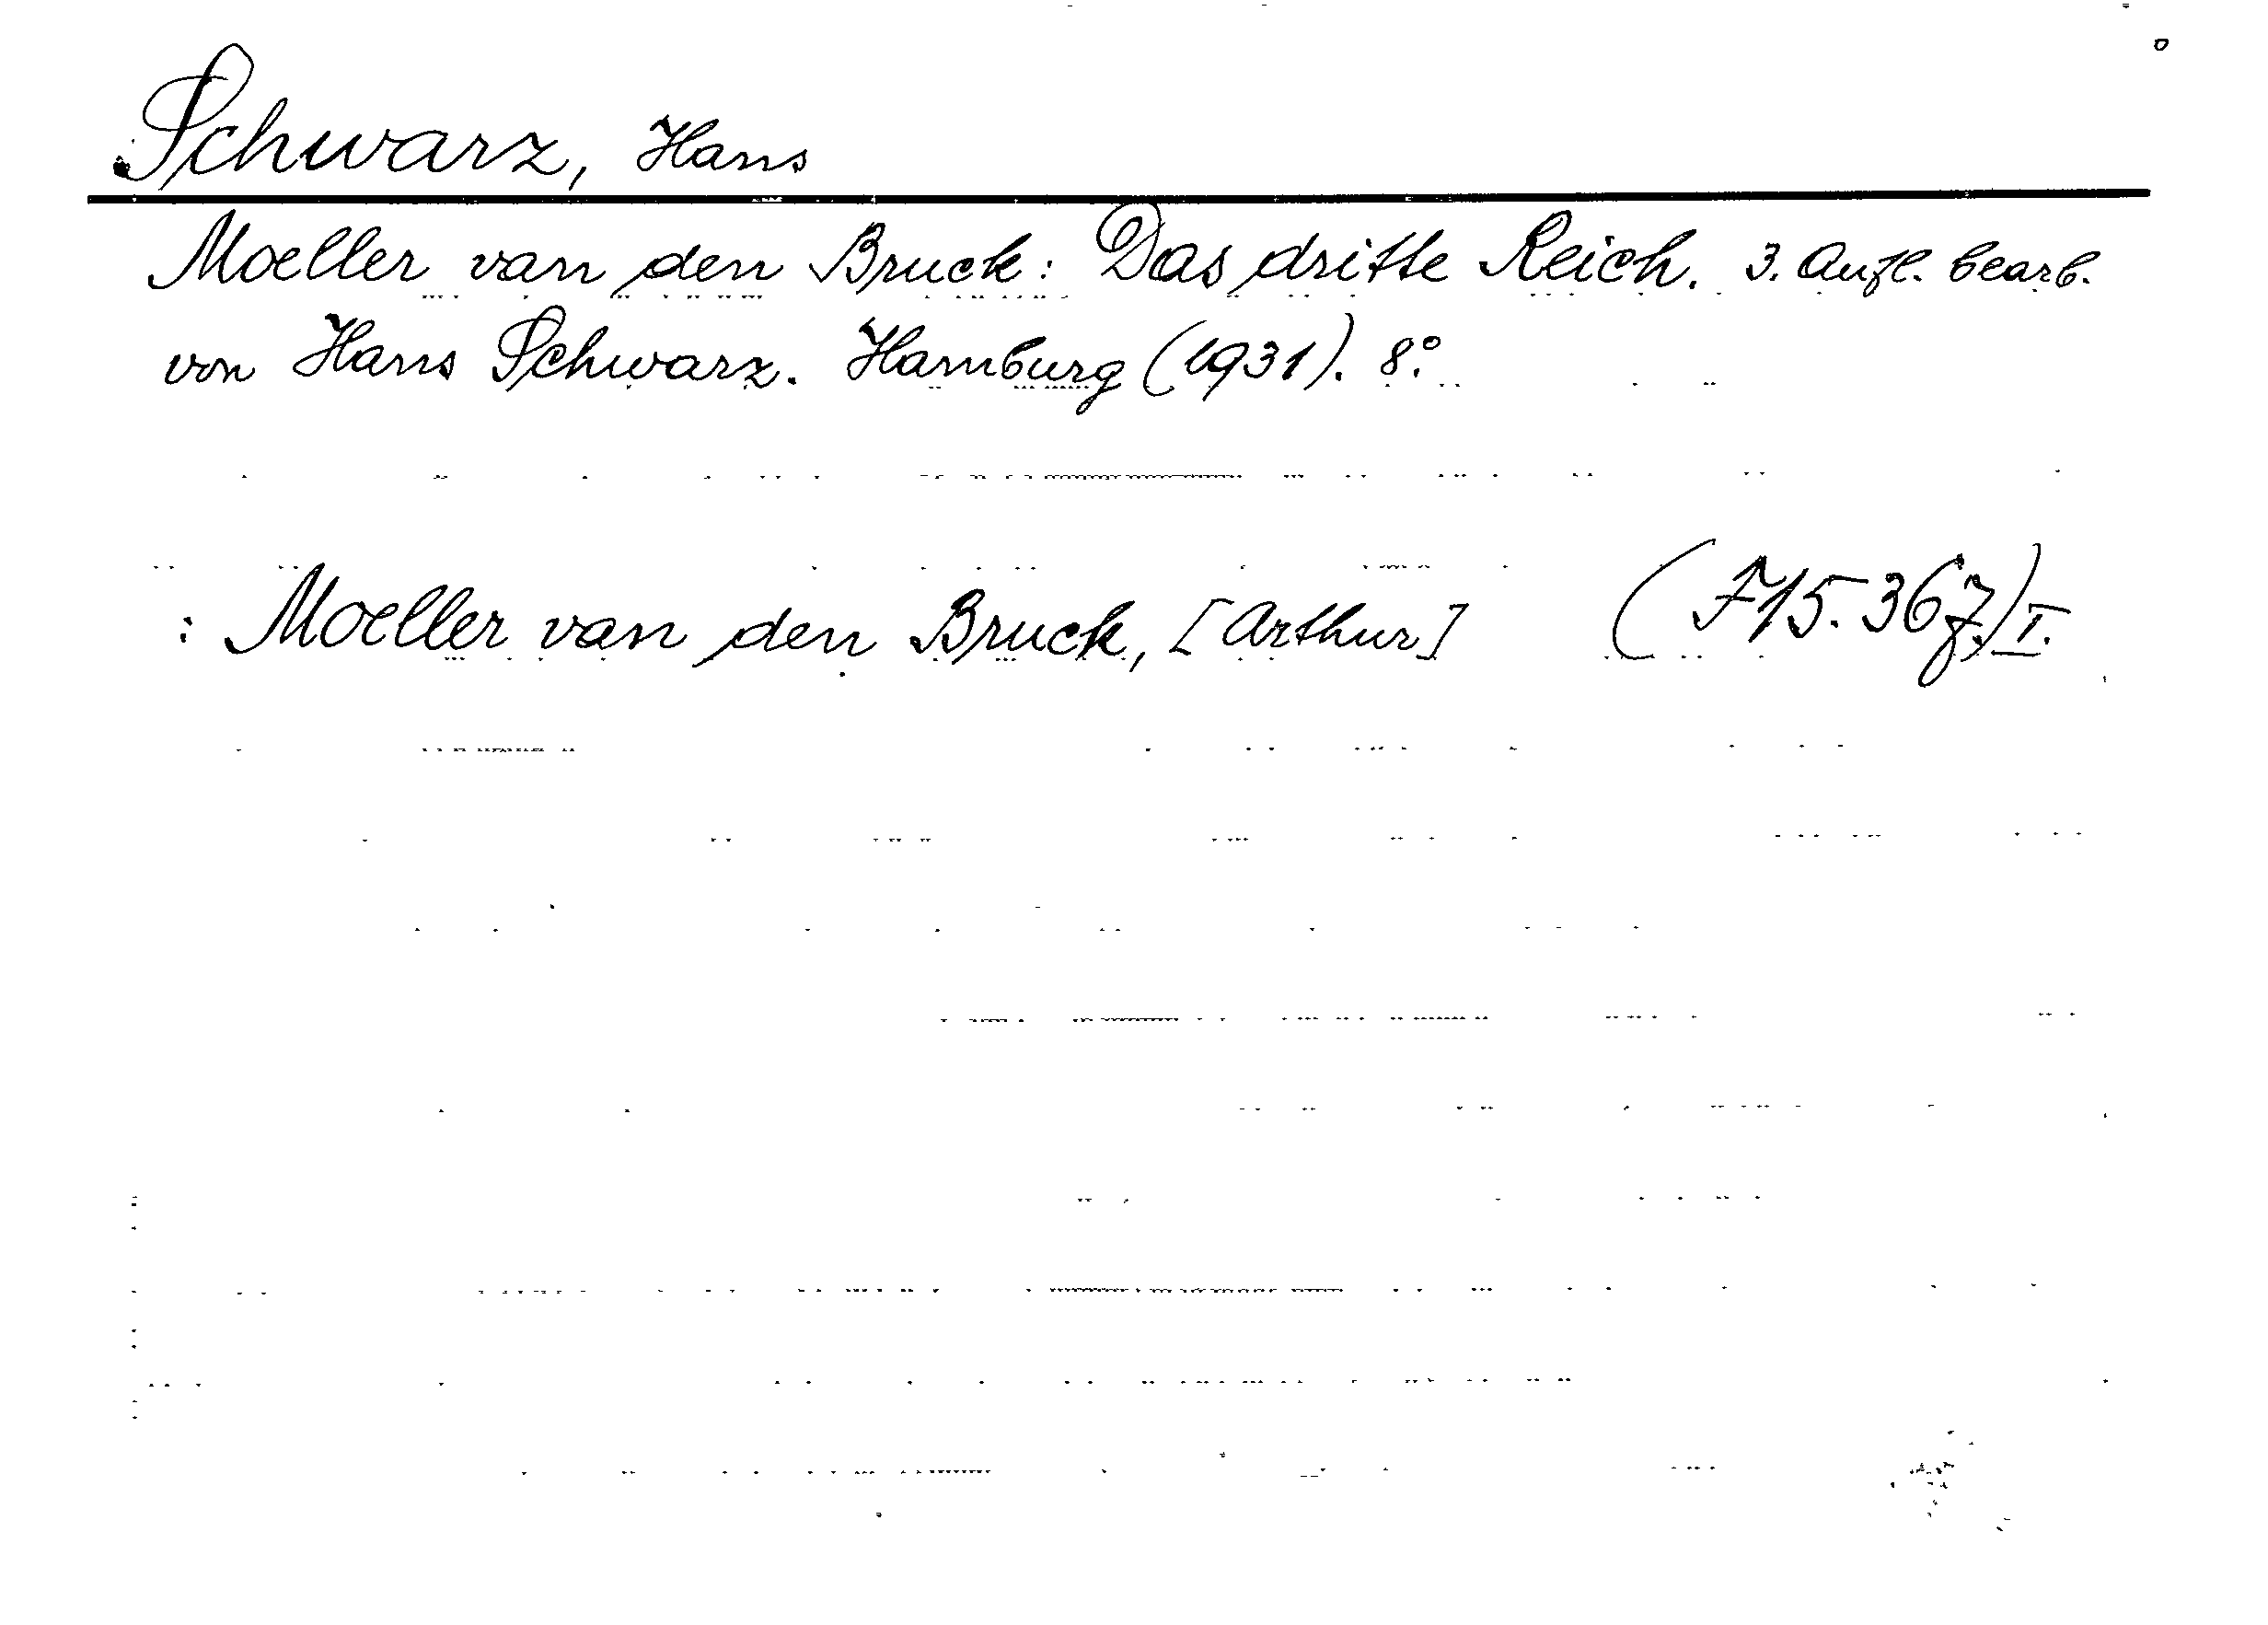 Schwarz, Hans
Moeller van den Bruck: Das dritte Reich. 3. Aufl. bearb.
von Hans Schwarz. Hamburg (1931). 8°.
: Moeller van den Bruck, [Arthur] (F15.367)I.